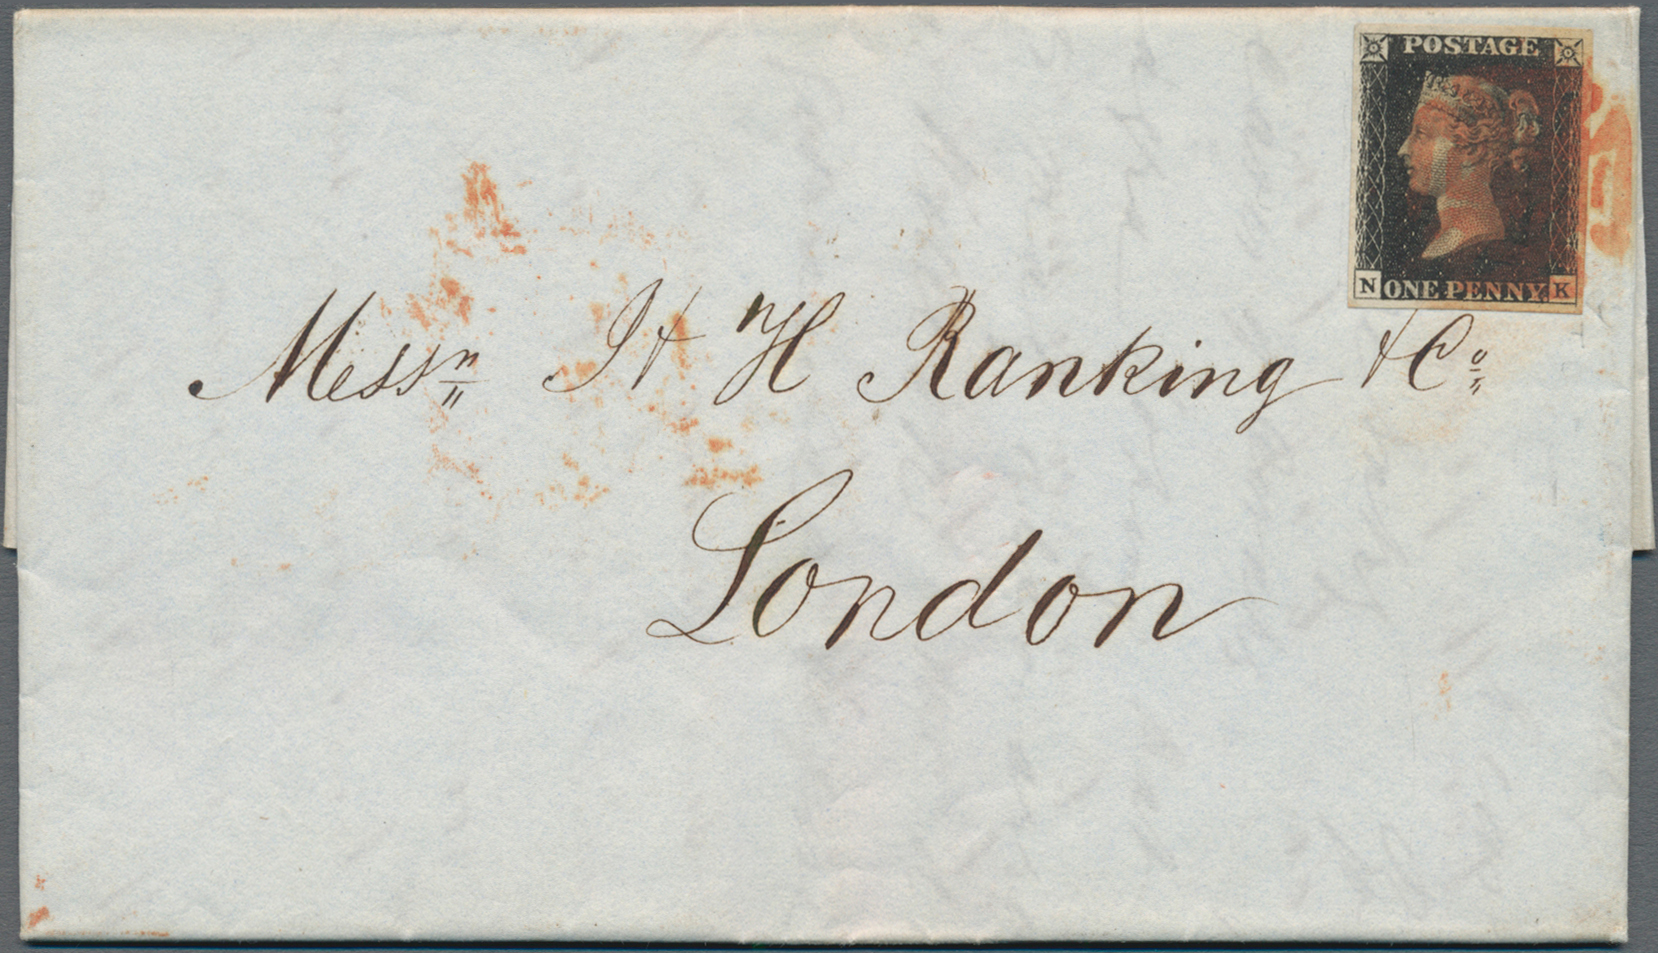 POSTAGE
N ONE PENNY K
Messrs H Ranking & Co
London